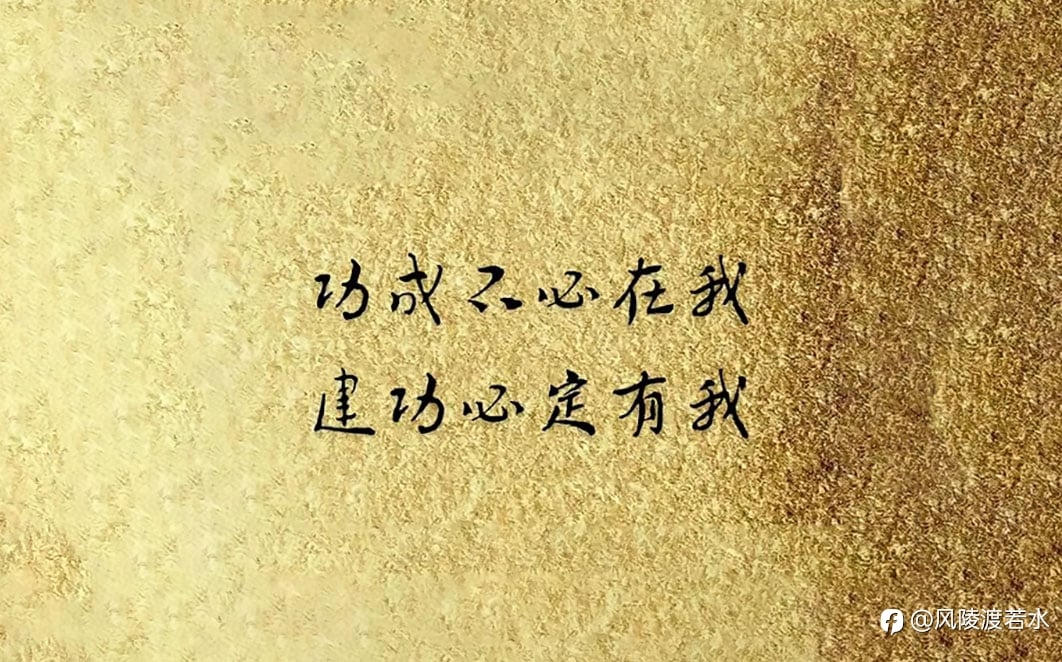 功成不必在我
建功必定有我
@风陵渡若水